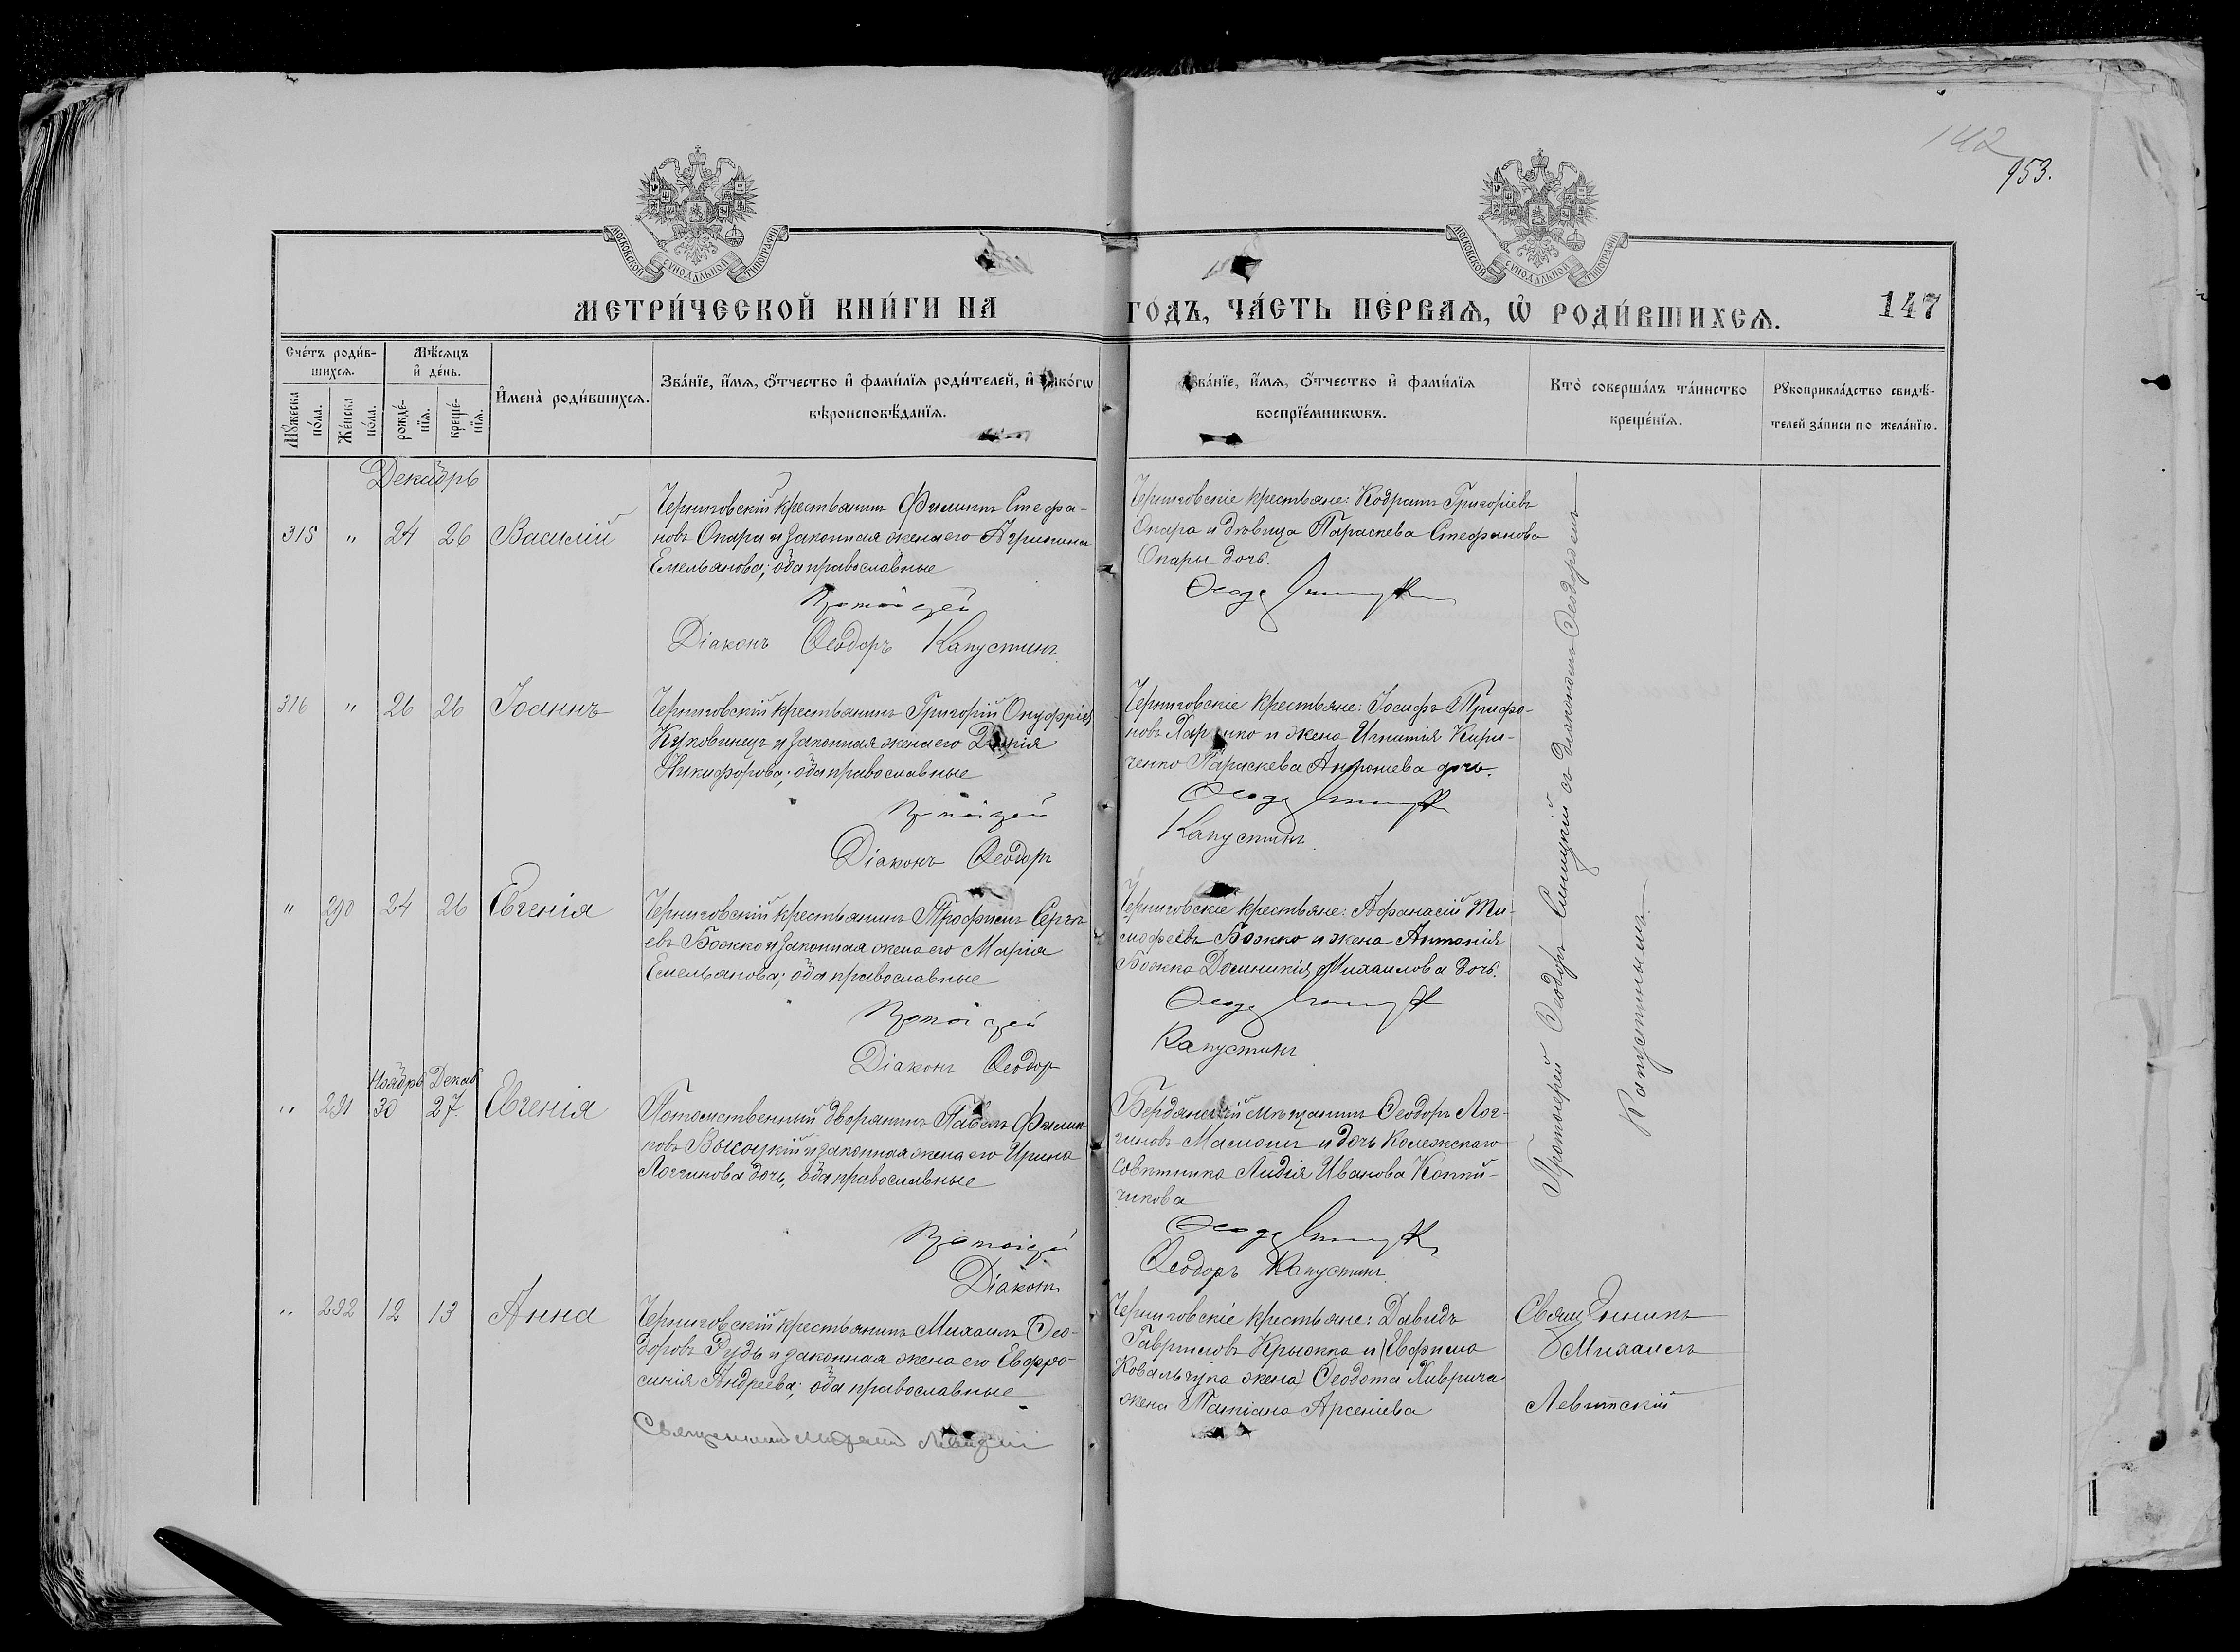 142
953.
МОСКОВСКОЙ СѴНОДАЛЬНОЙ ТИПОГРАФІИ
МОСКОВСКОЙ СѴНОДАЛЬНОЙ ТИПОГРАФІИ
МЕТРИ́ЧЕСКОЙ КНИ́ГИ НА ГО́ДЪ, ЧА́СТЬ ПЕ́РВАѦ, Ѡ҆ РОДИ́ВШИХСѦ.
147
Сче́тъ роди́в-
шихсѧ.
Мѣ́сѧцъ
и҆ де́нь.
Мꙋ́жеска
по́ла.
Же́нска
по́ла.
рожде́-
нїѧ.
креще́-
нїѧ.
И҆мена̀ роди́вшихсѧ.
Зва́нїе, и҆́мѧ, ѻ҆́тчество и҆ фами́лїѧ роди́телей, и҆ како́гѡ
вѣроисповѣ́данїѧ.
Зва́нїе, и҆́мѧ, ѻ҆́тчество и҆ фами́лїѧ
воспрїе́мникѡвъ.
Кто̀ соверша́лъ та́инство
креще́нїѧ.
Рꙋкоприкла́дство свидѣ́-
телей за́писи по жела́нїю.
Декабрь
315 " 24 26 Василій
Черниговскій крестьянинъ Филиппъ Стефа-
новъ Опара и законная жена его Агрипина
Емельянова; оба православные
Протоіерей
Діаконъ Ѳеодоръ Капустинъ
Черниговскіе крестьяне: Кодратъ Григоріевъ
Опара и дѣвица Параскева Стефанова
Опары дочь.
Протоіерей Ѳеодоръ Синицкій съ діакономъ Ѳеодоромъ
Капустинымъ.
316 " 26 26 Іоаннъ
Черниговскій крестьянинъ Григорій Онуфріевъ
Куковинецъ и законная жена его
Никифорова; оба православные
Протоіерей
Діаконъ Ѳеодоръ
Черниговскіе крестьяне: Іосифъ Трифо-
новъ и жена Игнатія Кири-
ченко Параскева дочь.
Капустинъ
" 290 24 26 Евгенія
Черниговскій крестьянинъ Трофимъ Сергѣ-
евъ Божко и законная жена его Марія
Емельянова; оба православные
Протоіерей
Діаконъ Ѳеодоръ
Черниговскіе крестьяне: Афанасій Ти-
моѳеевъ Божко и жена Антонія
Божка Домникія Михаилова дочь.
Капустинъ
Ноябрь Декаб
" 291 30 27. Евгенія
Потомственный дворянинъ Павелъ Филип-
повъ Высоцкій и законная жена его Ирина
Логгинова дочь, оба православные
Протоіерей
Діаконъ
Бердянскій мѣщанинъ Ѳеодоръ Лог-
гиновъ и дочь Колежскаго
совѣтника Лидія Иванова
чикова
Ѳеодоръ Капустинъ
" 292 12 13 Анна
Черниговскій крестьянинъ Михаилъ Ѳео-
доровъ Рудь и законная жена его Евфро-
синія Андреева; оба православные
Священникъ Михаилъ Левитскій
Черниговскіе крестьяне: Давидъ
Гавриловъ Крыжка и (Евфима
Ковальчука жена) Ѳеодота
жена Татіана Арсеніева
Священникъ
Михаилъ
Левитскій